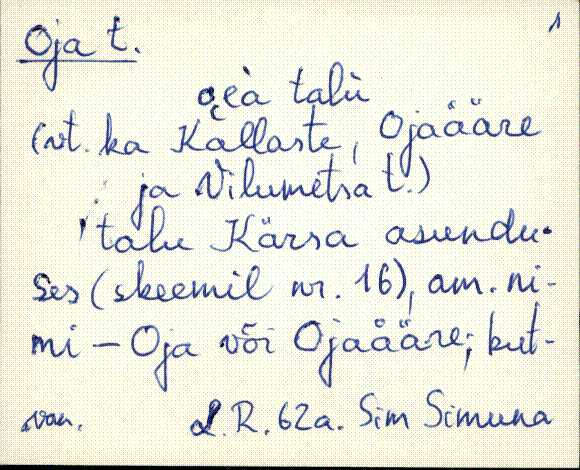 1
Oja t.
talu
(vt. ka Kallaste, Ojaääre
ja Vilumetsa t.)
talu Kärsa asundu-
ses (skeemil nr. 16), am. ni-
mi - Oja või Ojaääre; kut-
van. L.R. 62a. Sim Simuna